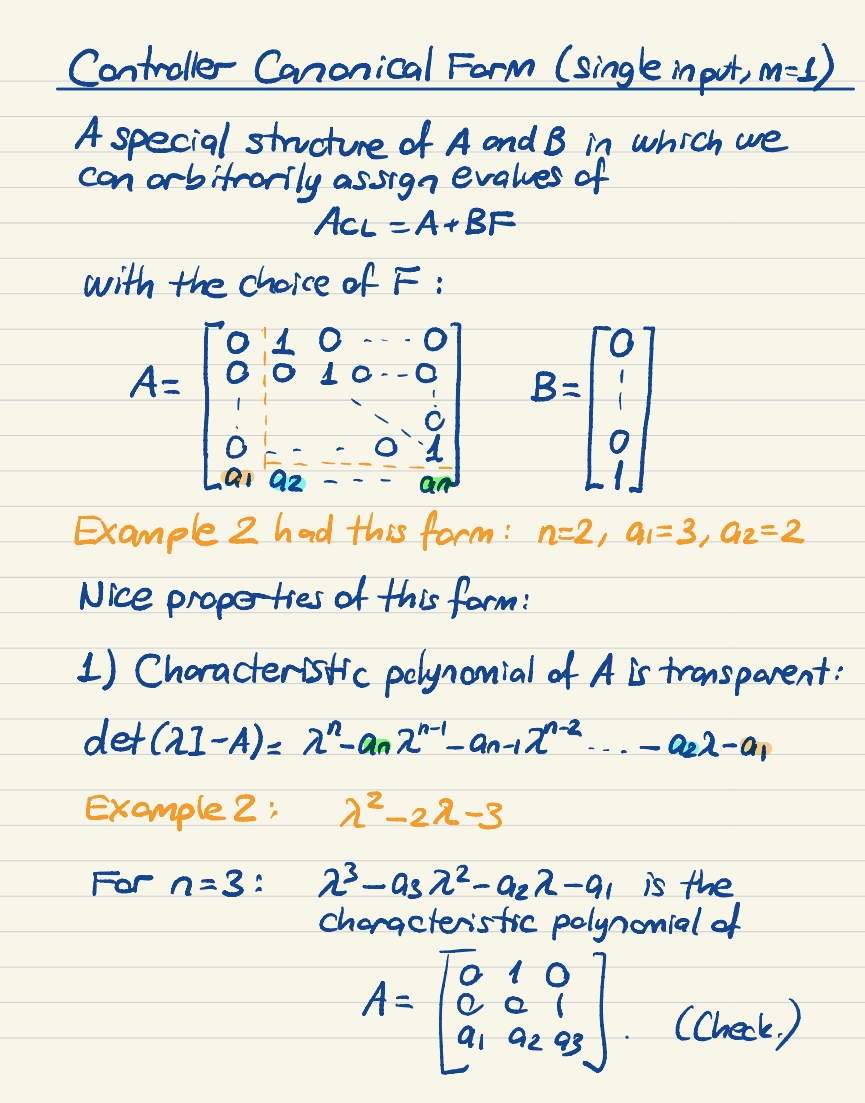 Controller Canonical Form (single input, m=1)
A special structure of A and B in which we
can arbitrarily assign evalues of
A_CL = A + BF
with the choice of F :
A = [ 0 1 0 - - - 0
0 0 1 0 - - 0
0
0 - - - 0 1
a₁ a₂ - - - - aₙ ]
B = [ 0
0
1 ]
Example 2 had this form: n=2, a₁=3, a₂=2
Nice properties of this form:
1) Characteristic polynomial of A is transparent:
det(λI-A) = λⁿ - aₙλⁿ⁻¹ - aₙ₋₁λⁿ⁻² ... - a₂λ - a₁
Example 2: λ² - 2λ - 3
For n=3: λ³ - a₃λ² - a₂λ - a₁ is the
characteristic polynomial of
A = [ 0 1 0
0 0 1
a₁ a₂ a₃ ] . (Check.)